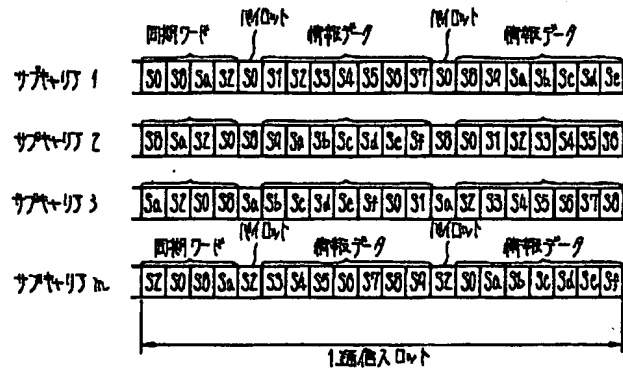 同期ワード パイロット 情報データ パイロット 情報データ
サブキャリア 1 S0 S8 Sa S2 S0 S1 S2 S3 S4 S5 S6 S7 S0 S8 S9 Sa Sb Sc Sd Se
サブキャリア 2 S8 Sa S2 S0 S8 S9 Sa Sb Sc Sd Se Sf S8 S0 S1 S2 S3 S4 S5 S6
サブキャリア 3 Sa S2 S0 S8 Sa Sb Sc Sd Se Sf S0 S1 Sa S2 S3 S4 S5 S6 S7 S8
同期ワード パイロット 情報データ パイロット 情報データ
サブキャリア m S2 S0 S8 Sa S2 S3 S4 S5 S6 S7 S8 S9 S2 S0 Sa Sb Sc Sd Se Sf
1通信スロット